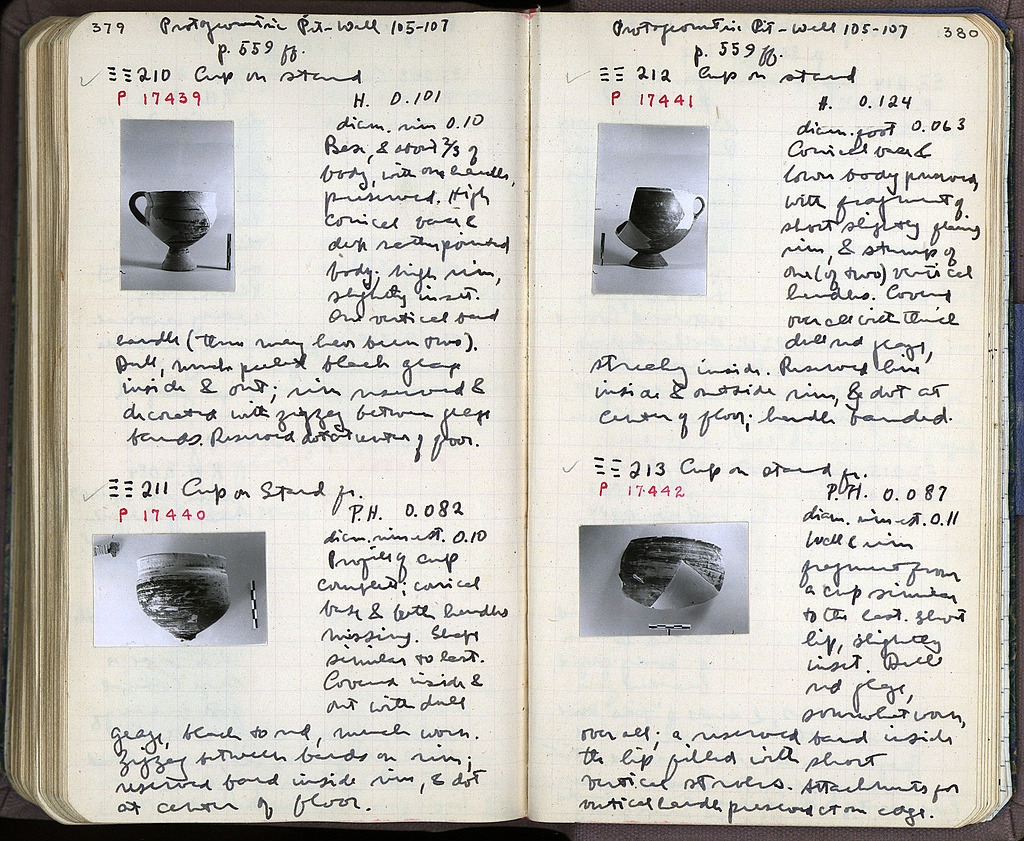 379 Protogeometric Pit-Well 105-107
p. 559 ff.
ΞΞ 210 Cup on stand
P 17439
H. 0.101
diam. rim 0.10
Base, & about 2/3 of
body, with one handle,
preserved. High
conical base &
deep rather pointed
body; high rim,
slightly inset.
One vertical band
handle (there may have been two).
Dull, much peeled black glaze
inside & out; rim reserved &
decorated with zigzag between glaze
bands. Reserved dot at center of floor.
ΞΞ 211 Cup on Stand fr.
P 17440
P.H. 0.082
diam. rim est. 0.10
Profile of cup
complete; conical
base & both handles
missing. Shape
similar to last.
Covered inside &
out with dull
glaze, black to red, much worn.
Zigzag between bands on rim;
reserved band inside rim, & dot
at center of floor.
Protogeometric Pit-Well 105-107 380
p. 559 ff.
ΞΞ 212 Cup on stand
P 17441
H. 0.124
diam. foot 0.063
Conical base &
lower body preserved
with fragment of
short slightly flaring
rim, & stump of
one (of two) vertical
handles. Covered
over all with thick
dull red glaze,
streaky inside. Reserved line
inside & outside rim, & dot at
center of floor; handle banded.
ΞΞ 213 Cup on stand fr.
P 17442
P.H. 0.087
diam. rim est. 0.11
Wall & rim
fragment from
a cup similar
to the last. Short
lip, slightly
inset. Dull
red glaze,
somewhat worn,
over all; a reserved band inside
the lip filled with short
vertical strokes. Attachments for
vertical handle preserved on edge.